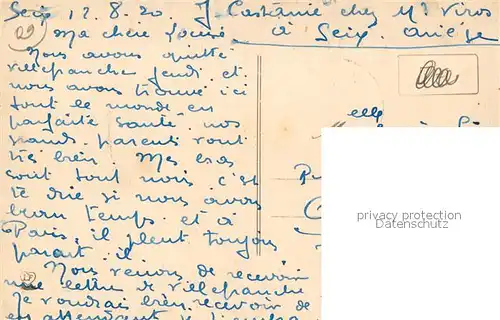 Seix 12.8.20 J Castérnie chez Mr Viros
à Seix. Ariège
Ma chère Louise
Nous avons quitté
villefranche jeudi et
nous avons trouvé ici
tout le monde en
parfaite santé. nos
grands parents vont
très bien. Mes bras
sont tout noirs c'est
te dire si nous avons
beau temps. et à
Paris, il pleut toujours
parait. il
Nous venons de recevoir
une lettre de villefranche
Je voudrais bien recevoir de
en attendant
privacy protection
Datenschutz